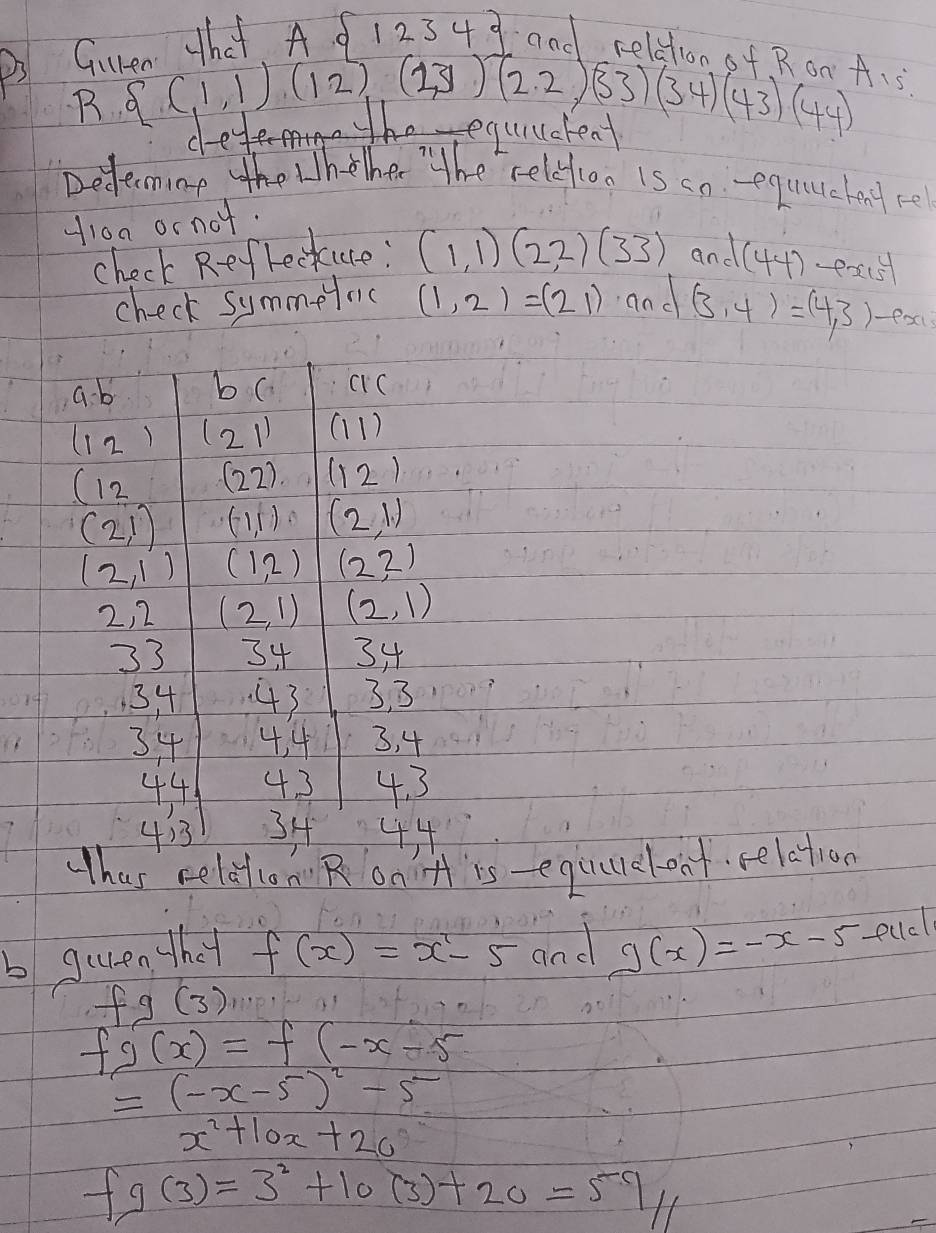 Q3 Given that A { 1 2 3 4 } and relation of R on A is.
R { (1,1) (12) (2,1) (2.2) (33) (34) (43) (44)
determine the equivalent
Determine the whether "the relation is an equivalent rel
tion or not.
check Reflective: (1,1) (2,2) (33) and (44) exist
check symmetric (1,2) = (21) and (3,4) = (4,3) exis
a.b b c a c
(12) (21) (11)
(12 (22). (12)
(2,1) (1,1) (2,1)
(2,1) (1,2) (2,2)
2,2 (2,1) (2,1)
33 3,4 3,4
3,4 43 3,3
3,4 4,4 3,4
4,4 4,3 4,3
4,3 3,4 4,4
Thus relation R on A is equivalent relation
b given that f(x) = x² - 5 and g(x) = -x - 5 eval
fg (3)
fg(x) = f(-x - 5
= (-x - 5)² - 5
x² + 10x + 20
fg(3) = 3² + 10(3) + 20 = 59//